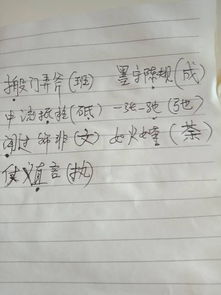 搬门弄斧(班) 墨守陈规(成)
中流抵柱(砥) 一张一驰(弛)
闻过饰非(文) 如火如荼(荼)
仗义直言(执)